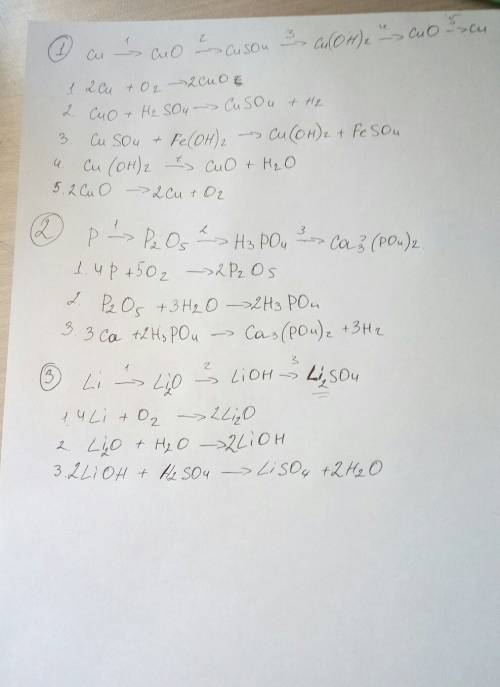 ① Cu —1→ CuO —2→ CuSO4 —3→ Cu(OH)2 —4→ CuO —5→ Cu
1. 2Cu + O2 → 2CuO
2. CuO + H2SO4 → CuSO4 + H2
3. CuSO4 + Fe(OH)2 → Cu(OH)2 + FeSO4
4. Cu(OH)2 —t→ CuO + H2O
5. 2CuO → 2Cu + O2
② P —1→ P2O5 —2→ H3PO4 —3→ Ca3(PO4)2
1. 4P + 5O2 → 2P2O5
2. P2O5 + 3H2O → 2H3PO4
3. 3Ca + 2H3PO4 → Ca3(PO4)2 + 3H2
③ Li —1→ Li2O —2→ LiOH —3→ Li2SO4
1. 4Li + O2 → 2Li2O
2. Li2O + H2O → 2LiOH
3. 2LiOH + H2SO4 → LiSO4 + 2H2O